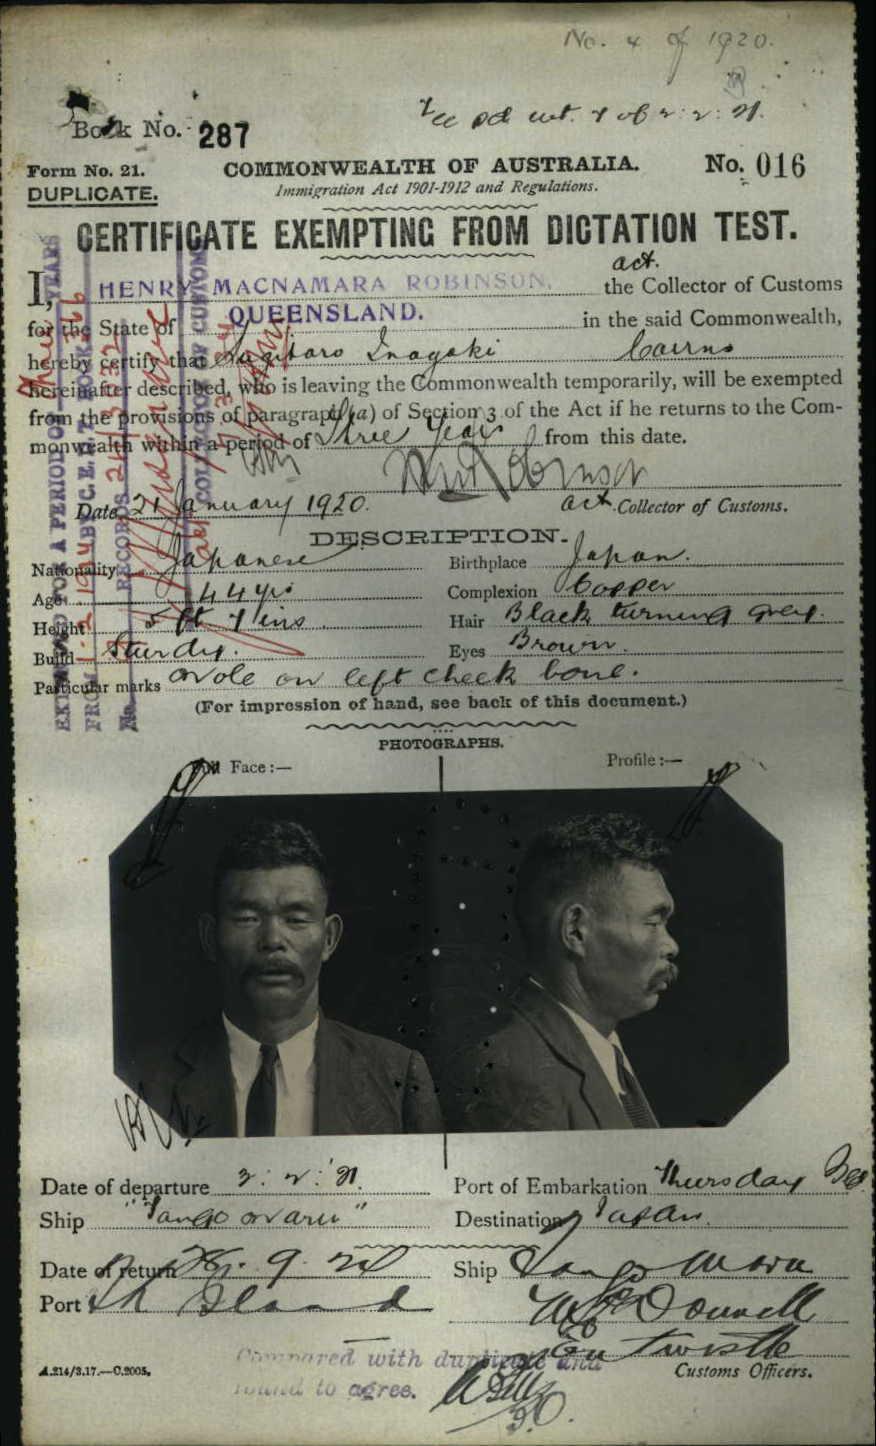 No. 4 of 1920.
Book No. 287
Form No. 21. COMMONWEALTH OF AUSTRALIA. No. 016
DUPLICATE. Immigration Act 1901-1912 and Regulations.
CERTIFICATE EXEMPTING FROM DICTATION TEST.
act.
I, HENRY MACNAMARA ROBINSON, the Collector of Customs
for the State of QUEENSLAND. in the said Commonwealth,
hereby certify that Inagaki Cairns
hereinafter described, who is leaving the Commonwealth temporarily, will be exempted
from the provisions of paragraph (a) of Section 3 of the Act if he returns to the Com-
monwealth within a period of Three Years from this date.
Date 21 January 1920. act. Collector of Customs.
DESCRIPTION.
Nationality Japanese Birthplace Japan.
Age 44 yrs Complexion Copper
Height 5 ft 1 ins Hair Black turning grey.
Build Sturdy. Eyes Brown.
Particular marks Mole on left cheek bone.
(For impression of hand, see back of this document.)
PHOTOGRAPHS.
Full Face:— Profile:—
Date of departure Port of Embarkation Thursday
Ship "Tango Maru" Destination Japan.
Date of return Ship Tango Maru
Port Island
Entwistle
A.214/3.17.—C.2005. Customs Officers.
Compared with duplicate and
found to agree.
EXTENDED FOR A PERIOD OF YEARS
RECORDS
COLLECTOR OF CUSTOMS